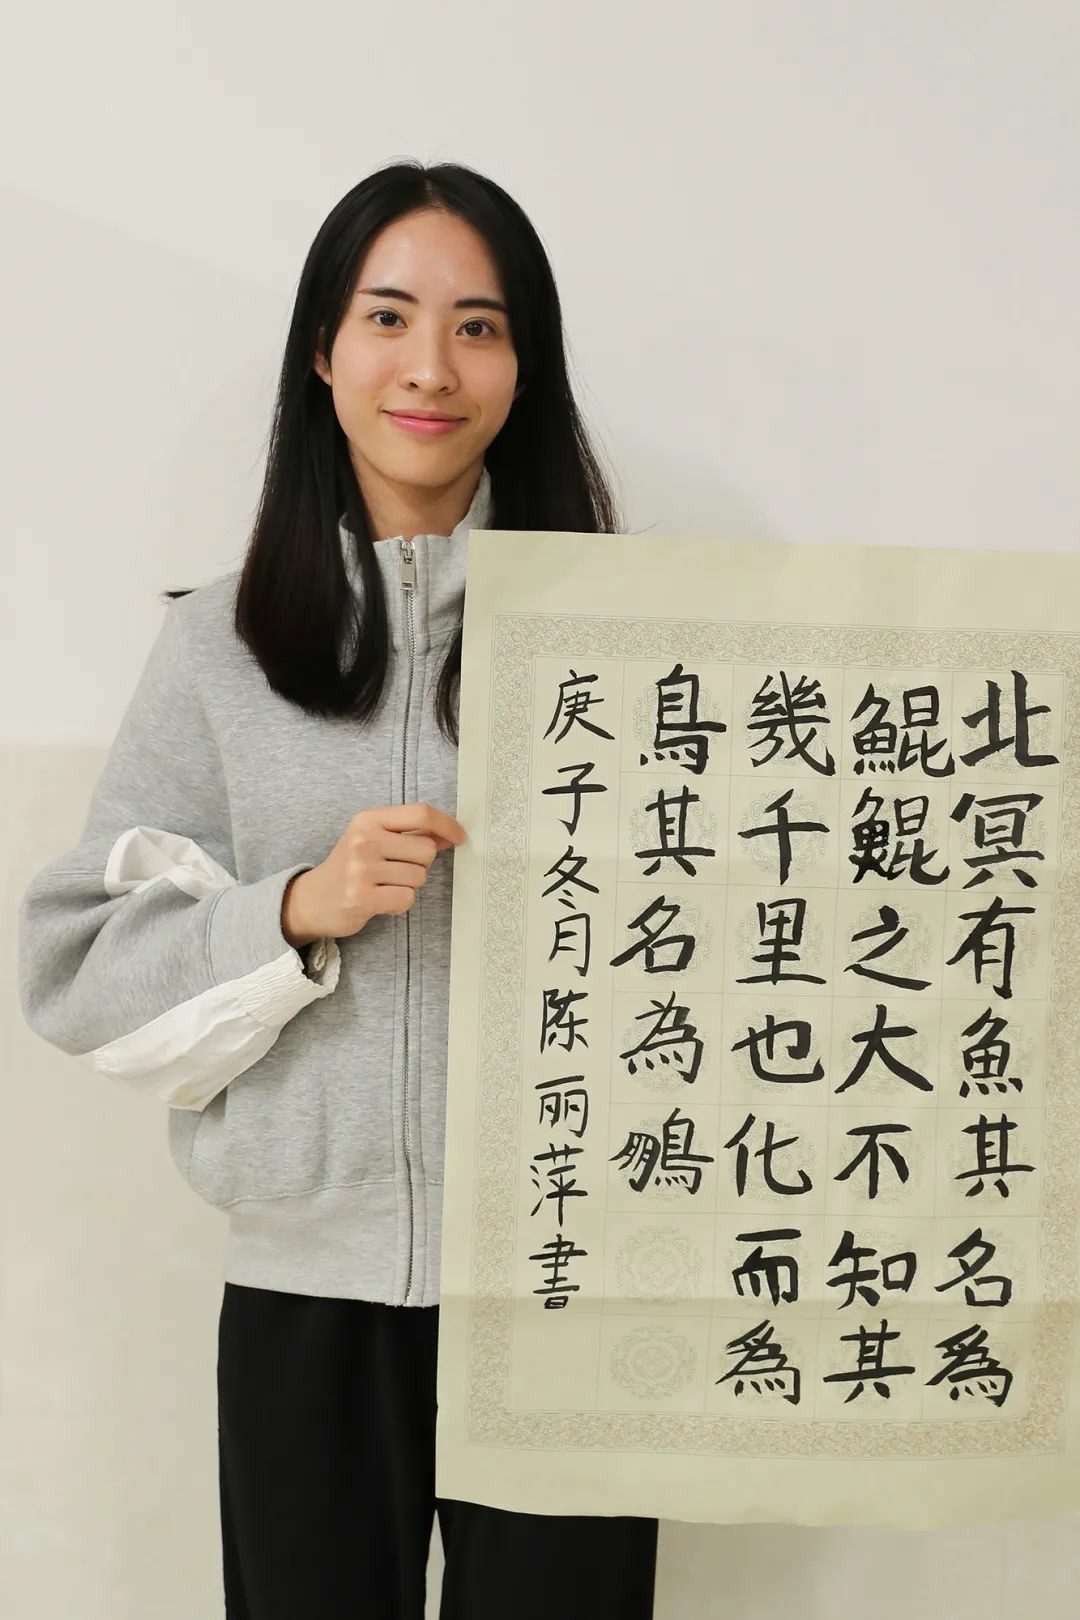 北冥有魚其名為
鯤鯤之大不知其
幾千里也化而為
鳥其名為鵬
庚子冬月陈丽萍書